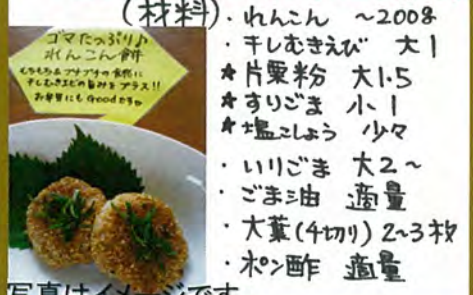 (材料)
・れんこん 〜200g
・干しむきえび 大1
★片栗粉 大1.5
★すりごま 小1
★塩こしょう 少々
・いりごま 大2〜
・ごま油 適量
・大葉(4切り) 2~3枚
・ポン酢 適量
ゴマたっぷり♪
れんこん餅
もちもち&プチプチの食感に
干しむきエビの旨みをプラス!!
お弁当にもGoodだョ
写真はイメージです